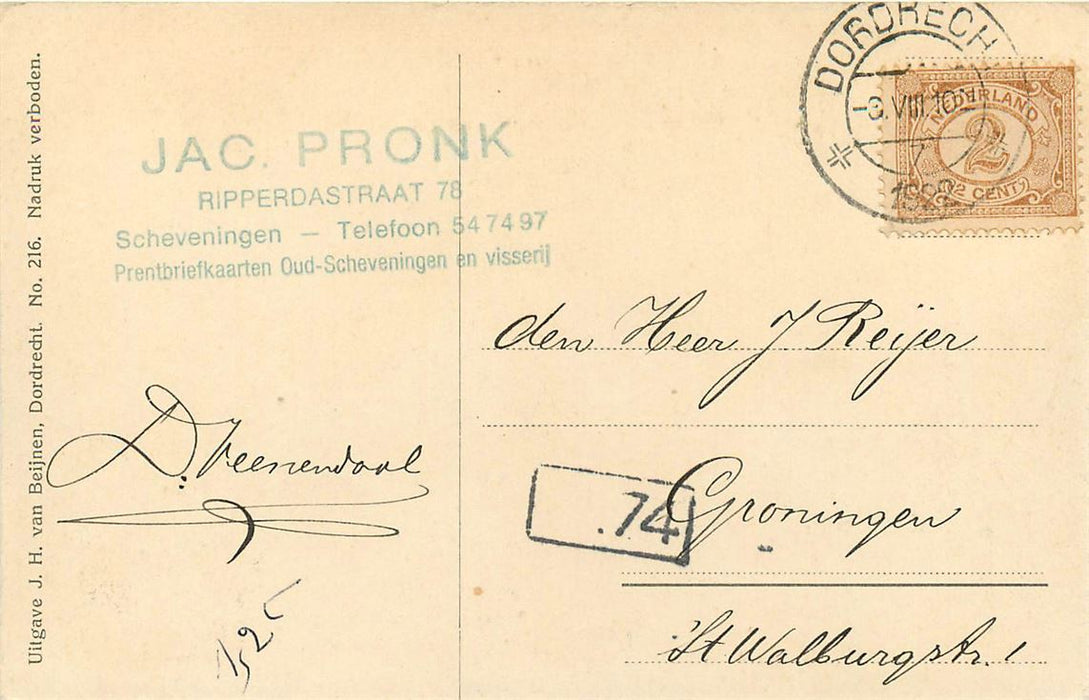 Uitgave J. H. van Beijnen, Dordrecht. No. 216. Nadruk verboden.
JAC. PRONK
RIPPERDASTRAAT 78
Scheveningen — Telefoon 547497
Prentbriefkaarten Oud-Scheveningen en visserij
DORDRECH
3.VIII.10
NEDERLAND
2
2 CENT
den Heer J Reijer
.74
Groningen
St Walburgstr. 1
D. Veenendaal